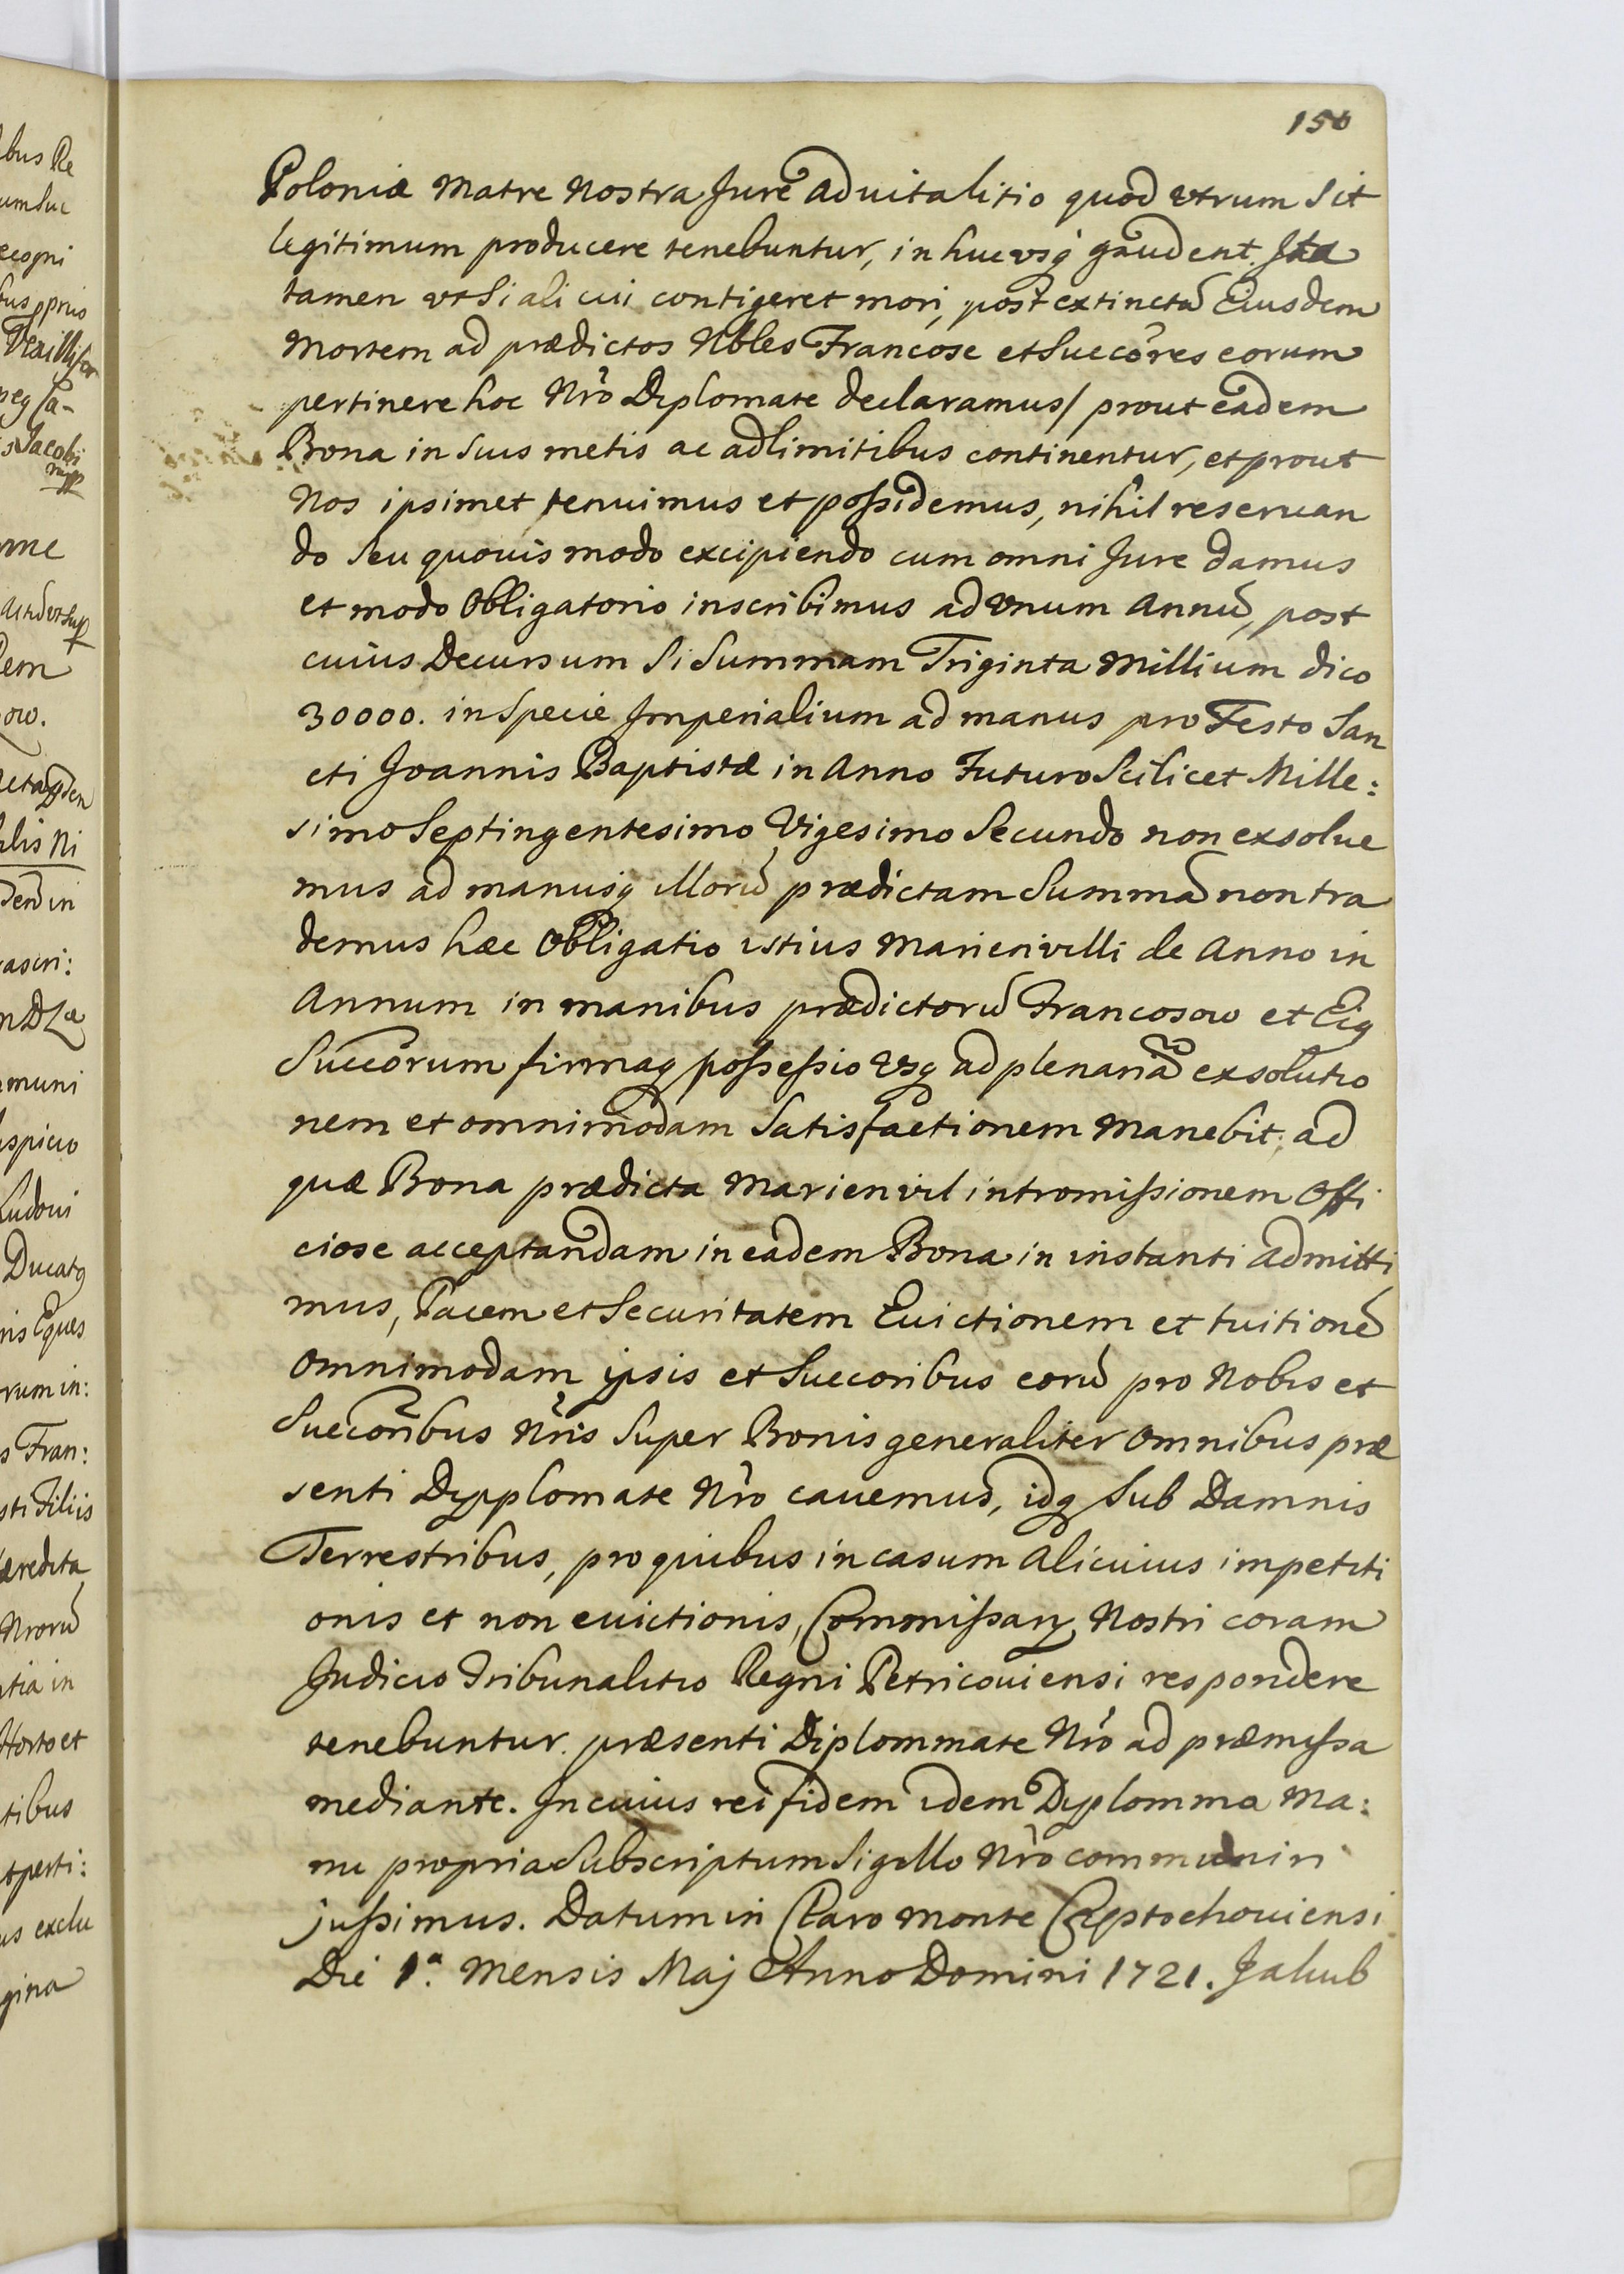 150
Poloniæ Matre Nostra Jure aduitalitio quod vtrum sit
legitimum producere tenebuntur, in huc vsq gaudent. Ita
tamen vt si ali cui contigeret mori, post extinctã Eiusdem
Mortem ad prædictos Nbles Francose et Succores eorum
pertinere hoc Nrõ Dyplomate declaramus/ prout eadem
Bona in suis metis ac adlimitibus continentur, et prout
Nos ipsimet tenuimus et possidemus, nihil reseruan
do seu quouis modo excipiendo cum omni Jure damus
et modo Obligatorio inscribimus ad vnum Annũ, post
cuius Decursum si Summam Triginta Millium dico
30000. in Specie Imperialium ad manus pro Festo San
cti Joannis Baptistæ in Anno Futuro Scilicet Mille:
simo Septingentesimo Vigesimo Secundo non exsolue
mus ad manusq illorũ prædictam Summã non tra
demus hæc Obligatio istius Marienvilli de Anno in
Annum in manibus prædictorũ Francosow et Eiq
Succorum firmaq possessio vsq ad plenariã exsolutio
nem et omnimodam Satisfactionem manebit; ad
quæ Bona prædicta Marienvil intromissionem Offi
ciose acceptandam in eadem Bona in instanti admitti
mus, Pacem et Securitatem Euictionem et tuitionẽ
Omnimodam ipsis et Succoribus eorũ pro Nobis et
Succoribus Nris Super Bonis generaliter Omnibus præ
senti Dypplomate Nrõ cauemus, idq sub Damnis
Terrestribus, pro quibus in casum alicuius impetiti
onis et non euictionis, Commissarÿ Nostri coram
Judicio Tribunalitio Regni Petricouiensi respondere
tenebuntur. præsenti Diplommate Nrõ ad præmissa
mediante. In cuius rei fidem idem Dyplomma Ma:
nu propria Subscriptum Sigillo Nrõ communiri
jussimus. Datum in Claro Monte Czestochouiensi
Die 1ª. Mensis Maj Anno Domini 1721. Jakub